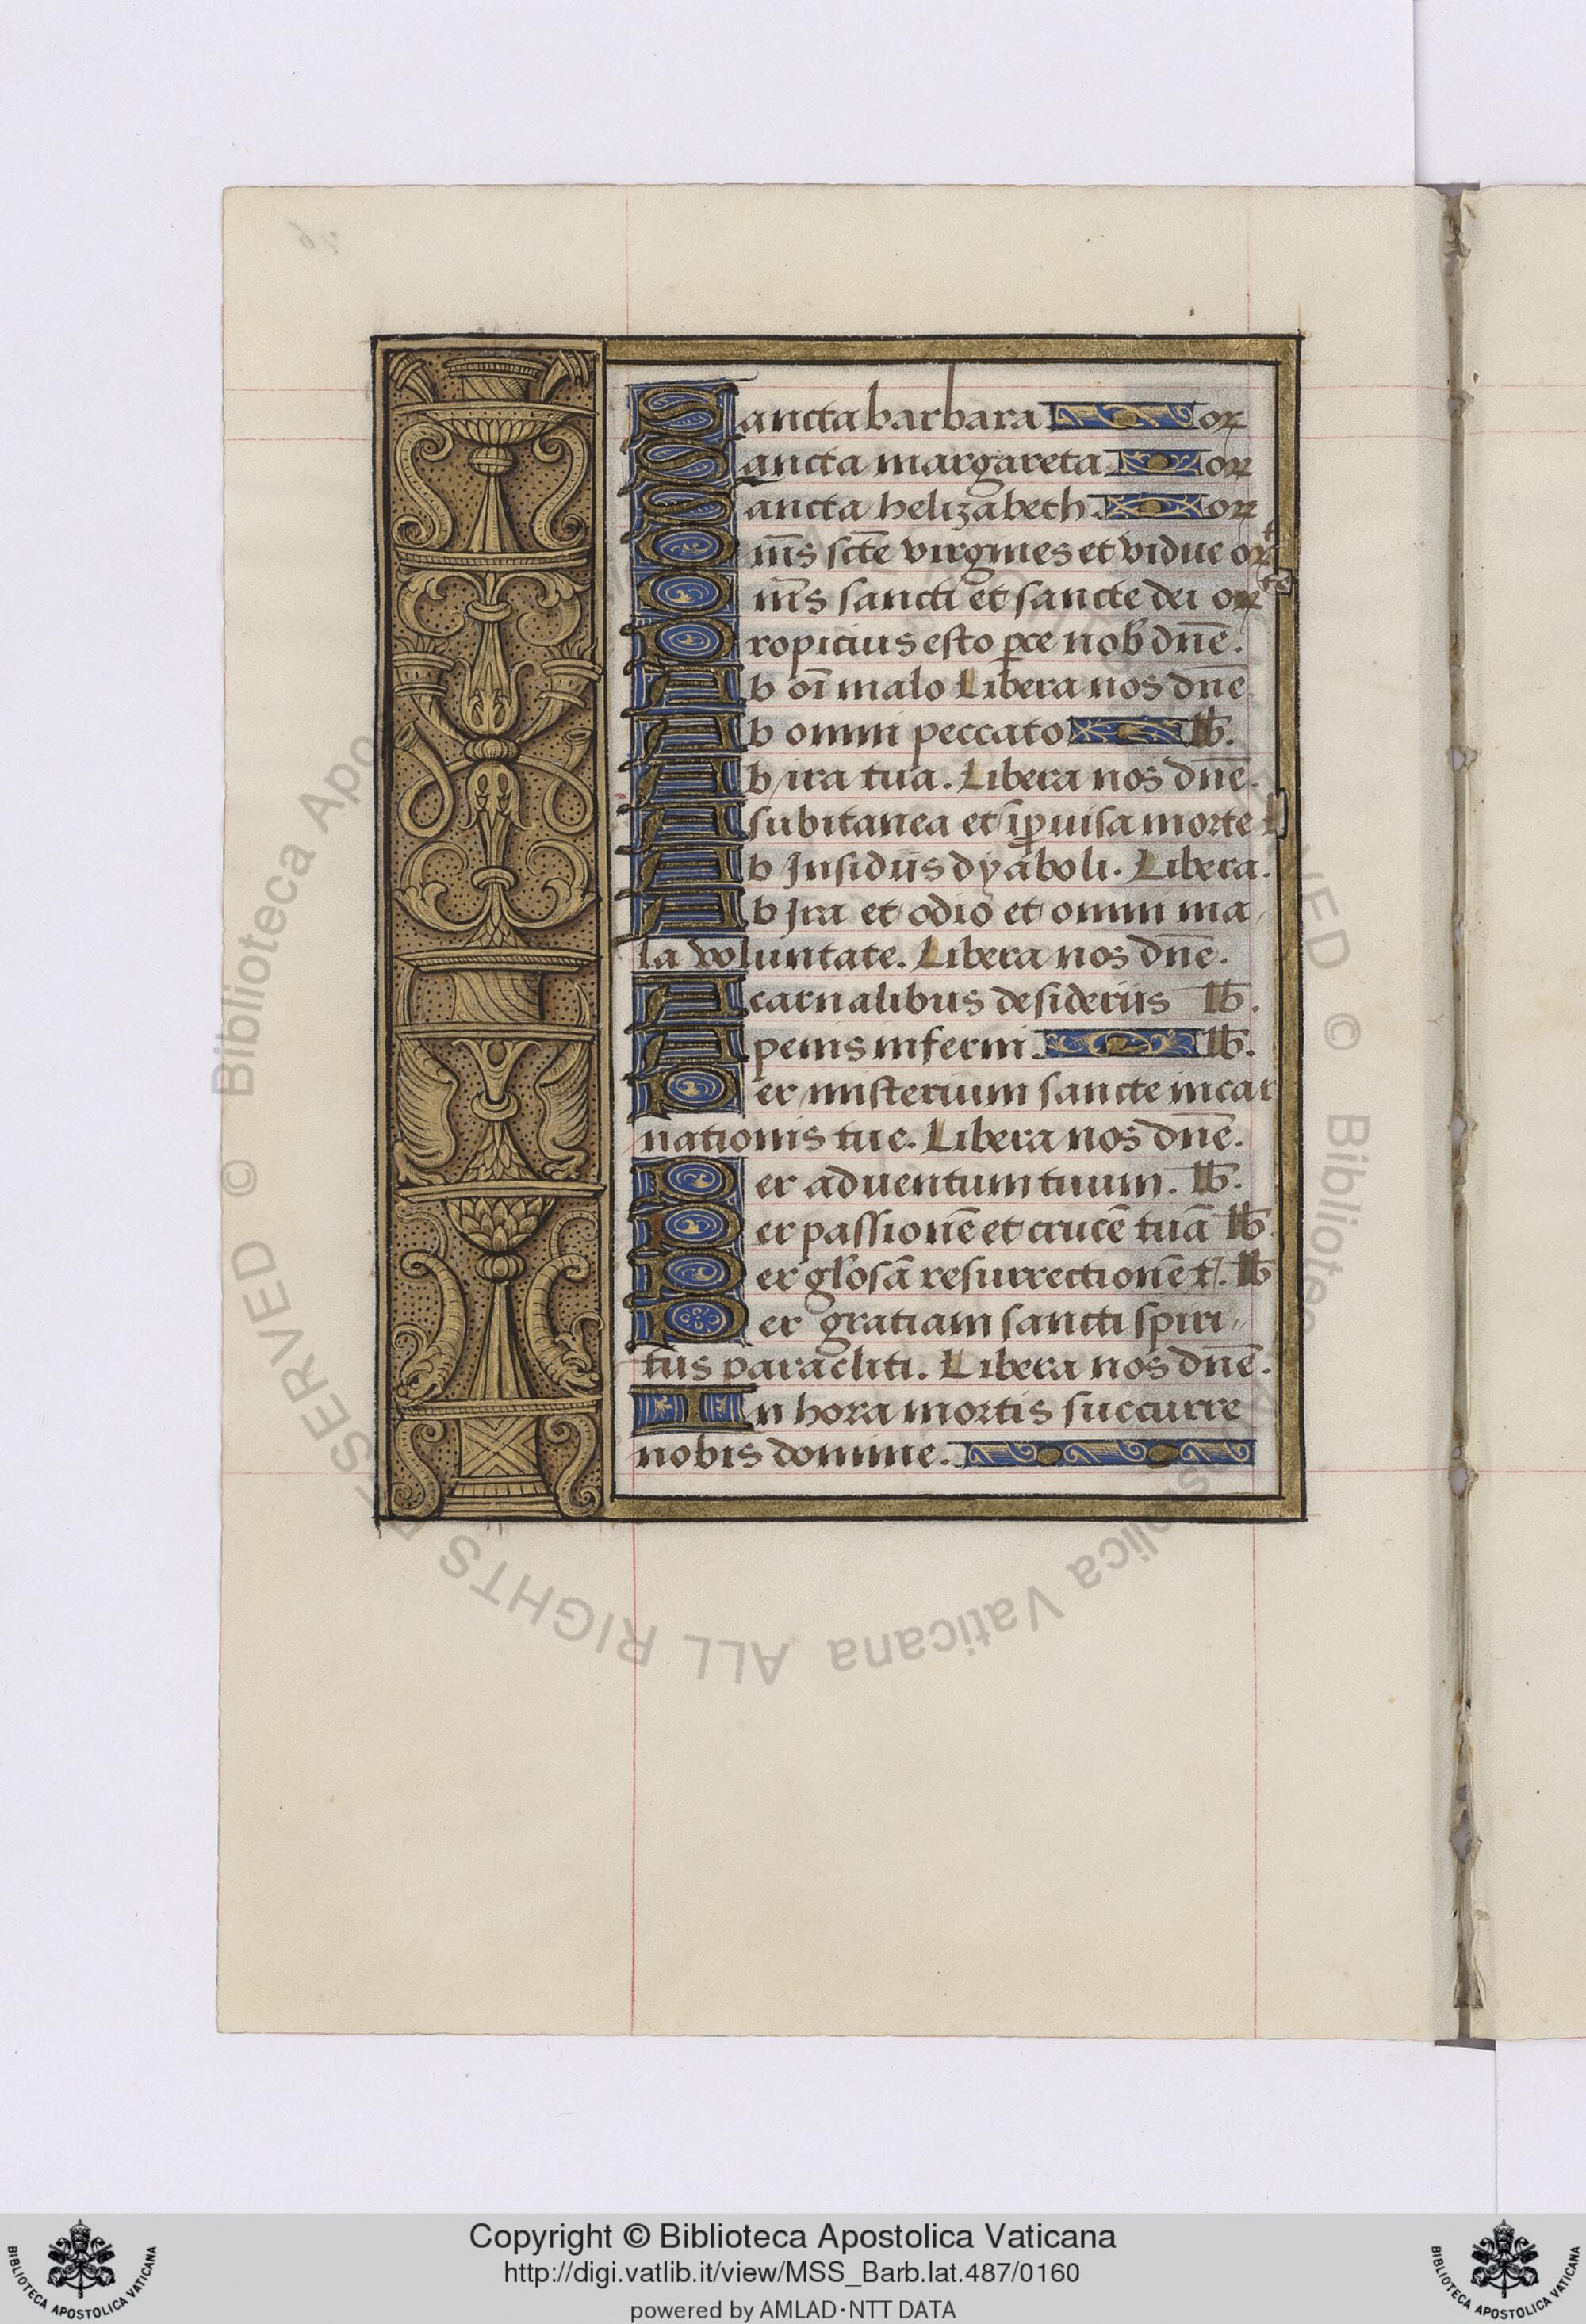 Sancta barbara or
Sancta margareta. or
Sancta helizabeth. or
Om̄s sct̄e virgines et vidue or
Om̄s sancti et sancte dei or
Propicius esto ꝑce nob dn̄e.
Ab oī malo Libera nos dn̄e.
Ab omni peccato lb.
Ab ira tua. Libera nos dn̄e.
A subitanea et īprouisa morte l
Ab Insidiis dyaboli. Libera.
Ab Ira et odio et omni ma
la voluntate. Libera nos dn̄e.
A carnalibus desideriis lb.
A penis inferni. lb.
Per misterium sancte incar
nationis tue. Libera nos dn̄e.
Per aduentum tuum. lb.
Per passionē et crucē tuā lb.
Per glosā resurrectionē t. lb
Per gratiam sancti spiri
tus paracliti. Libera nos dn̄e.
In hora mortis succurre
nobis domine.
© Biblioteca Apostolica Vaticana ALL RIGHTS RESERVED
Copyright © Biblioteca Apostolica Vaticana
http://digi.vatlib.it/view/MSS_Barb.lat.487/0160
powered by AMLAD·NTT DATA
BIBLIOTECA APOSTOLICA VATICANA
BIBLIOTECA APOSTOLICA VATICANA